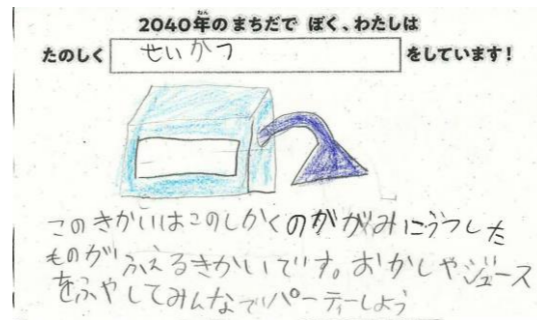 2040年のまちだで ぼく、わたしは
たのしく せいかつ をしています!
このきかいはこのしかくのかがみにうつした
ものがふえるきかいです。おかしやジュース
をふやしてみんなでパーティーしよう